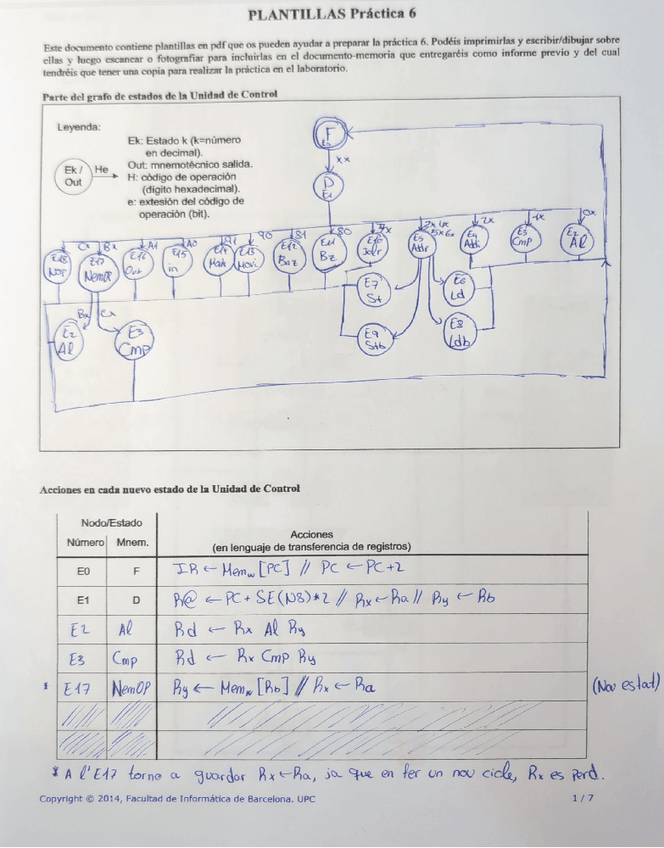 PLANTILLAS Práctica 6
Este documento contiene plantillas en pdf que os pueden ayudar a preparar la práctica 6. Podéis imprimirlas y escribir/dibujar sobre
ellas y luego escanear o fotografiar para incluirlas en el documento-memoria que entregaréis como informe previo y del cual
tendréis que tener una copia para realizar la práctica en el laboratorio.
Parte del grafo de estados de la Unidad de Control
Leyenda:
Ek /
Out
He
Ek: Estado k (k=número
en decimal).
Out: mnemotécnico salida.
H: código de operación
(dígito hexadecimal).
e: extesión del código de
operación (bit).
F
xx
D
E1
Cx Bx A1 A0 90 81 80 2x 1x 0x
E18 Nop
E17 NemOP
E16 Out
E15 in
E13 Movi
E12 Bnz
E11 Bz
E10 Jalr
E5 Addr
E4 Addi
E3 Cmp
E2 Al
E7 St
E6 Ld
E9 Stb
E8 Ldb
Bx Cx
E2 Al
E3 Cmp
Acciones en cada nuevo estado de la Unidad de Control
Nodo/Estado
Número Mnem.
Acciones
(en lenguaje de transferencia de registros)
E0 F IR ← Memw [PC] // PC ← PC+2
E1 D R@ ← PC + SE(N8)*2 // Rx ← Ra // Ry ← Rb
E2 Al Rd ← Rx Al Ry
E3 Cmp Rd ← Rx Cmp Ry
* E17 NemOP Ry ← Memw [Rb] // Rx ← Ra (Nou estat)
* A l'E17 torno a guardar Rx←Ra, ja que en fer un nou cicle, Rx es perd.
Copyright © 2014, Facultad de Informática de Barcelona. UPC 1 / 7